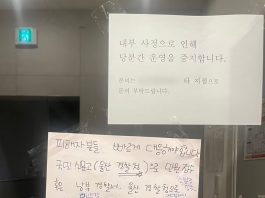 내부 사정으로 인해
당분간 운영을 중지합니다.
문의는 타 지점으로
문의 부탁드립니다.
피해자분들 빠르게 대응해야합니다
국민신문고(울산 경찰청)으로 민원접수
혹은 남부경찰서, 울산 경찰청으로